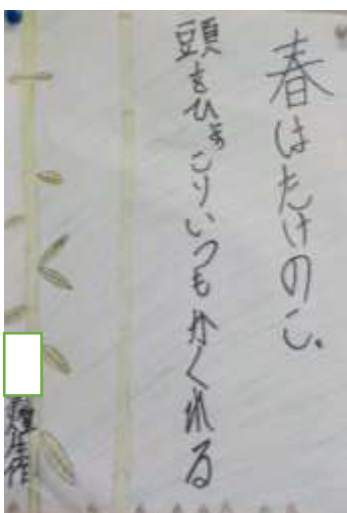 春はたけのこ。
頭をひょっこりいつもかくれる
作